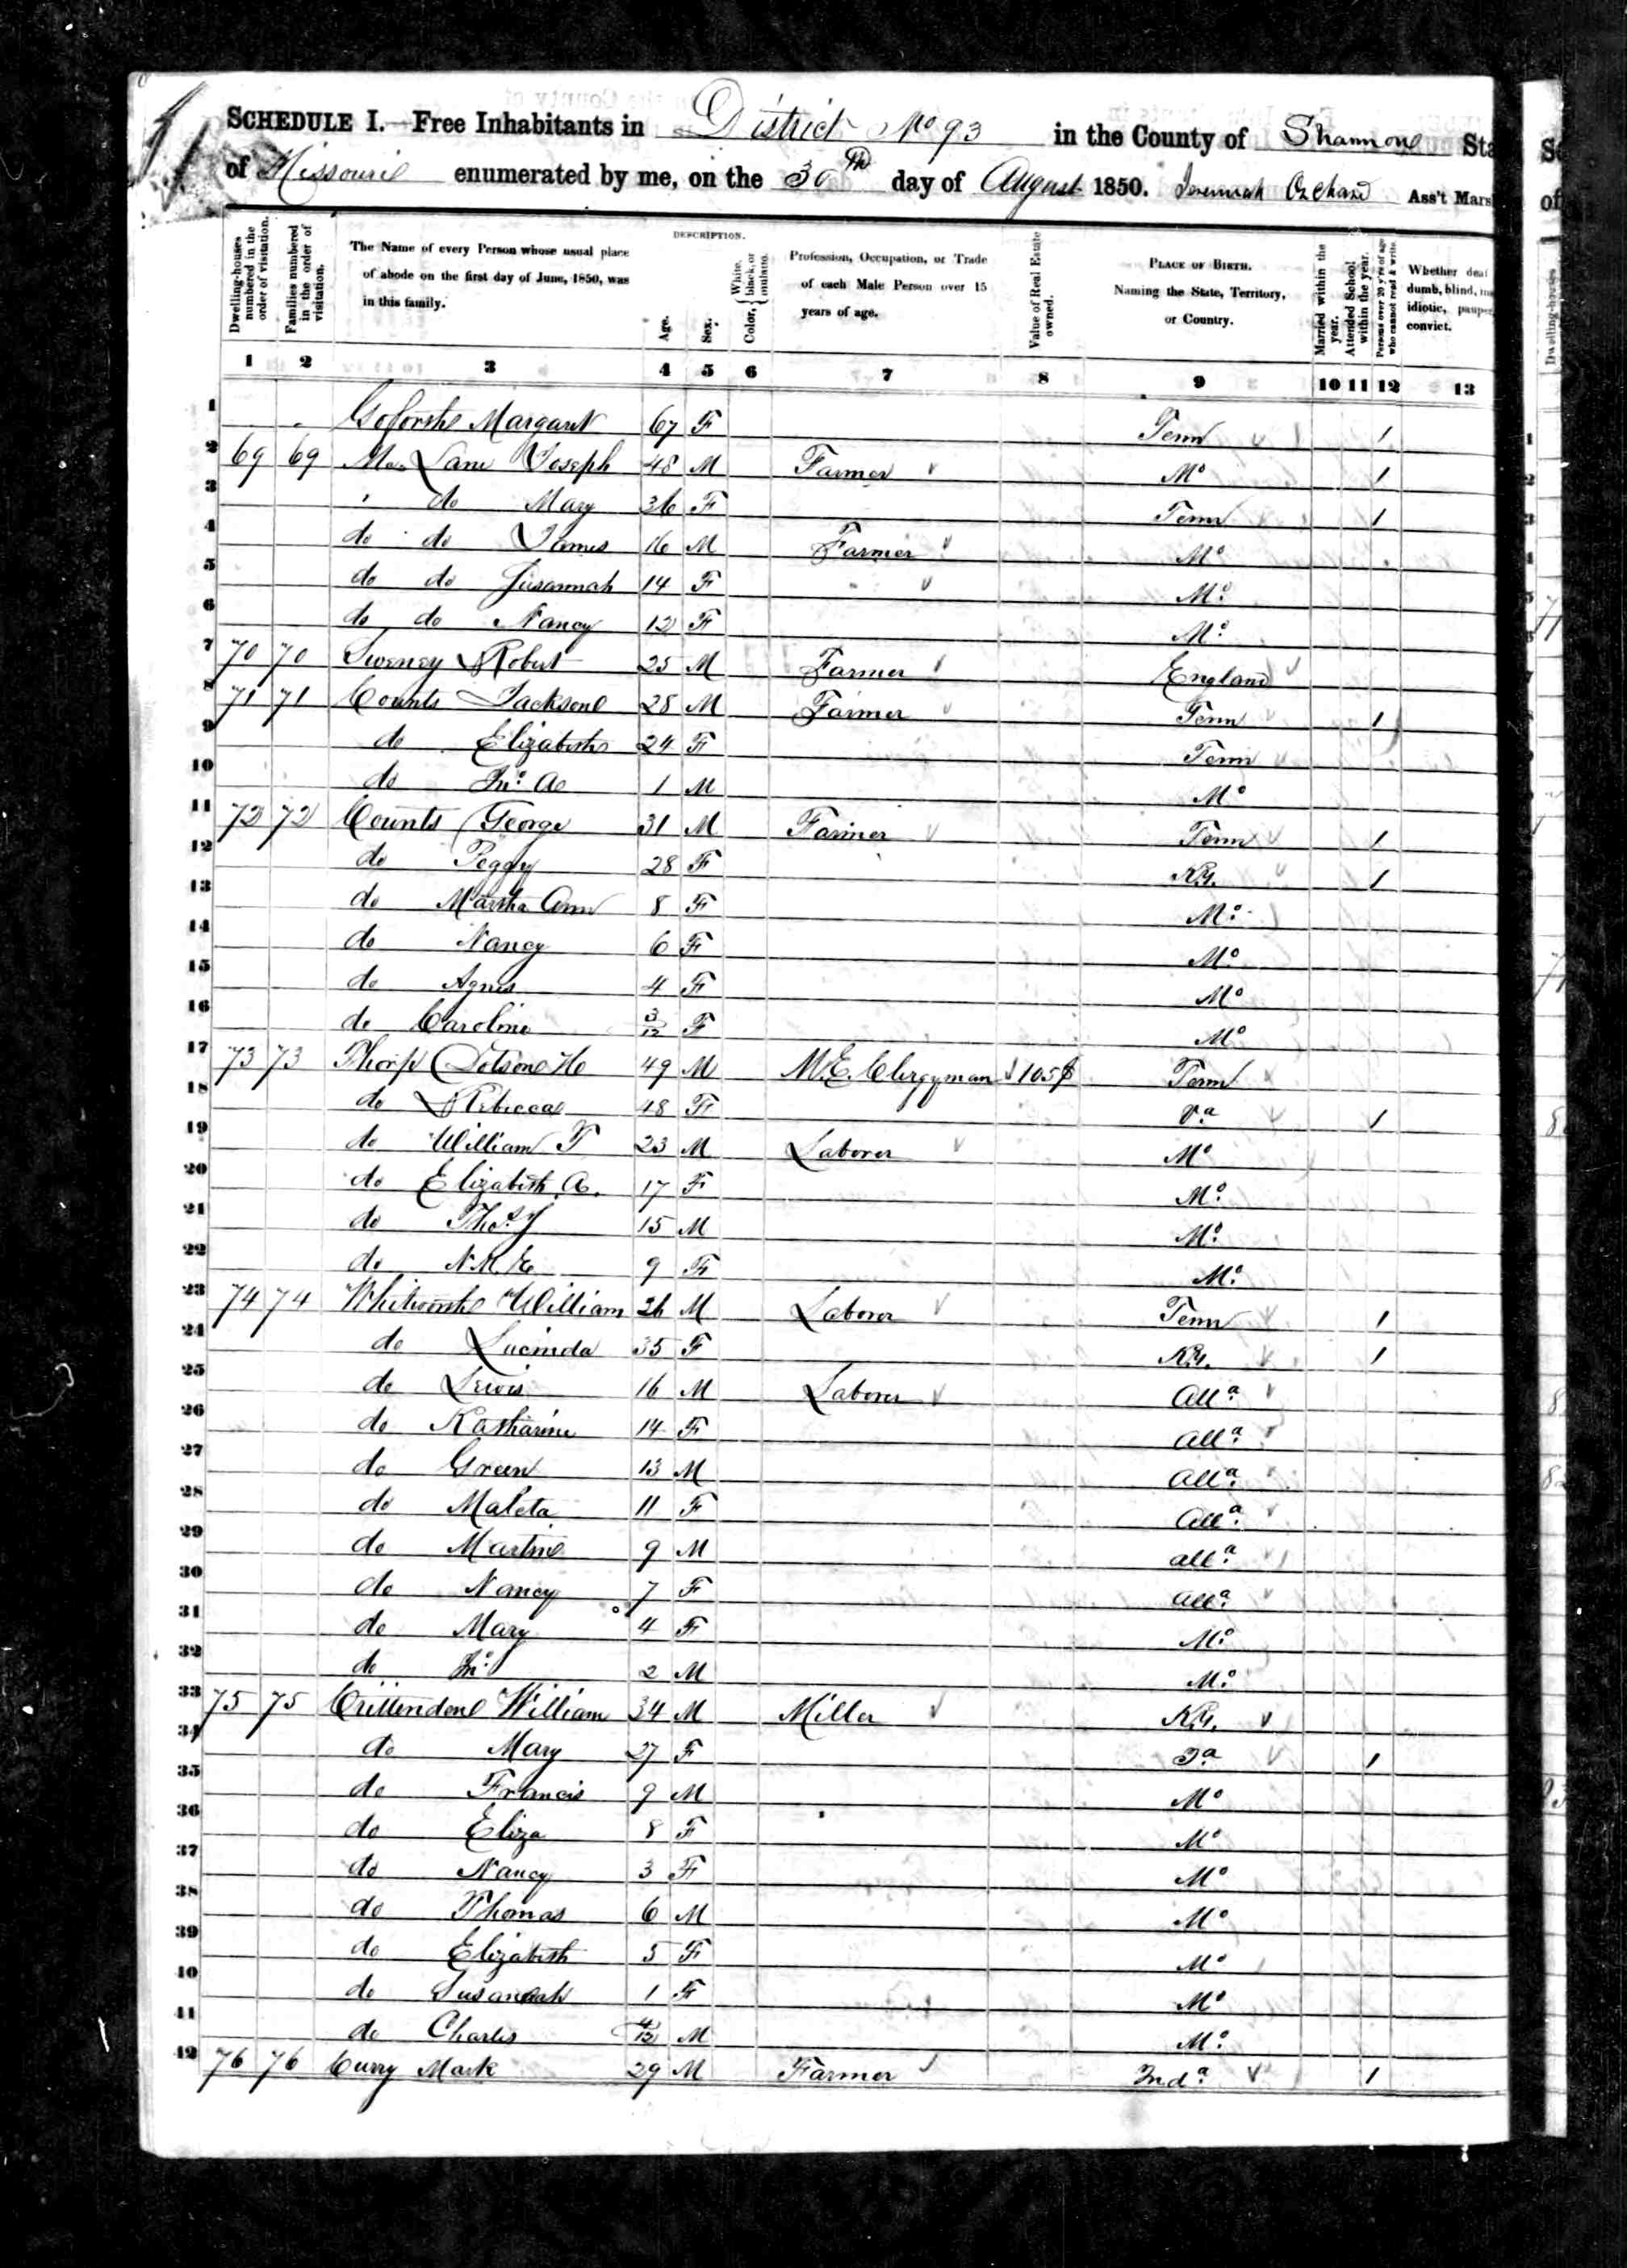 SCHEDULE I.—Free Inhabitants in District No 93 in the County of Shannon Sta
of Missouri enumerated by me, on the 30th day of August 1850. Jeremiah Orchard Ass't Mars
Dwelling-houses numbered in the order of visitation.
Families numbered in the order of visitation.
The Name of every Person whose usual place of abode on the first day of June, 1850, was in this family.
DESCRIPTION.
Age.
Sex.
Color, { White, black, or mulatto.
Profession, Occupation, or Trade of each Male Person over 15 years of age.
Value of Real Estate owned.
PLACE OF BIRTH. Naming the State, Territory, or Country.
Married within the year.
Attended School within the year.
Persons over 20 y'rs of age who cannot read & write.
Whether deaf dumb, blind, in idiotic, pauper, convict.
1 2 3 4 5 6 7 8 9 10 11 12 13
1 Goforth Margaret 67 F Tenn 1
2 69 69 Mc Lane Joseph 48 M Farmer Mo 1
3 do Mary 36 F Tenn 1
4 do do James 16 M Farmer Mo
5 do do Susannah 14 F Mo.
6 do do Nancy 12 F Mo.
7 70 70 Sweney Robert 25 M Farmer England
8 71 71 Counts Jackson 28 M Farmer Tenn 1
9 do Elizabeth 24 F Tenn
10 do Jno. A 1 M Mo
11 72 72 Counts George 31 M Farmer Tenn 1
12 do Peggy 28 F Ky. 1
13 do Martha Ann 8 F Mo.
14 do Nancy 6 F Mo.
15 do Agnes 4 F Mo
16 do Caroline 3/12 F Mo
17 73 73 Thorp Dotson H 49 M M.E. Clergyman 105$ Tenn
18 do Rebecca 48 F Va 1
19 do William T 23 M Laborer Mo
20 do Elizabeth A. 17 F Mo.
21 do Thos. Y 15 M Mo.
22 do N.M.E. 9 F Mo.
23 74 74 Whitworth William 26 M Laborer Tenn 1
24 do Lucinda 35 F Ky. 1
25 do Lewis 16 M Laborer Alla.
26 do Katharine 14 F Alla.
27 do Green 13 M Alla.
28 do Maleta 11 F Alla.
29 do Martin 9 M alla.
30 do Nancy 7 F Alla.
31 do Mary 4 F Mo.
32 do Jno. 2 M Mo.
33 75 75 Crittenden William 34 M Miller Ky.
34 do Mary 27 F 1
35 do Francis 9 M Mo
36 do Eliza 8 F Mo
37 do Nancy 3 F Mo
38 do Thomas 6 M Mo
39 do Elizabeth 5 F Mo
40 do Susannah 1 F Mo
41 do Charles 4/12 M Mo.
42 76 76 Curry Mark 29 M Farmer Inda. 1